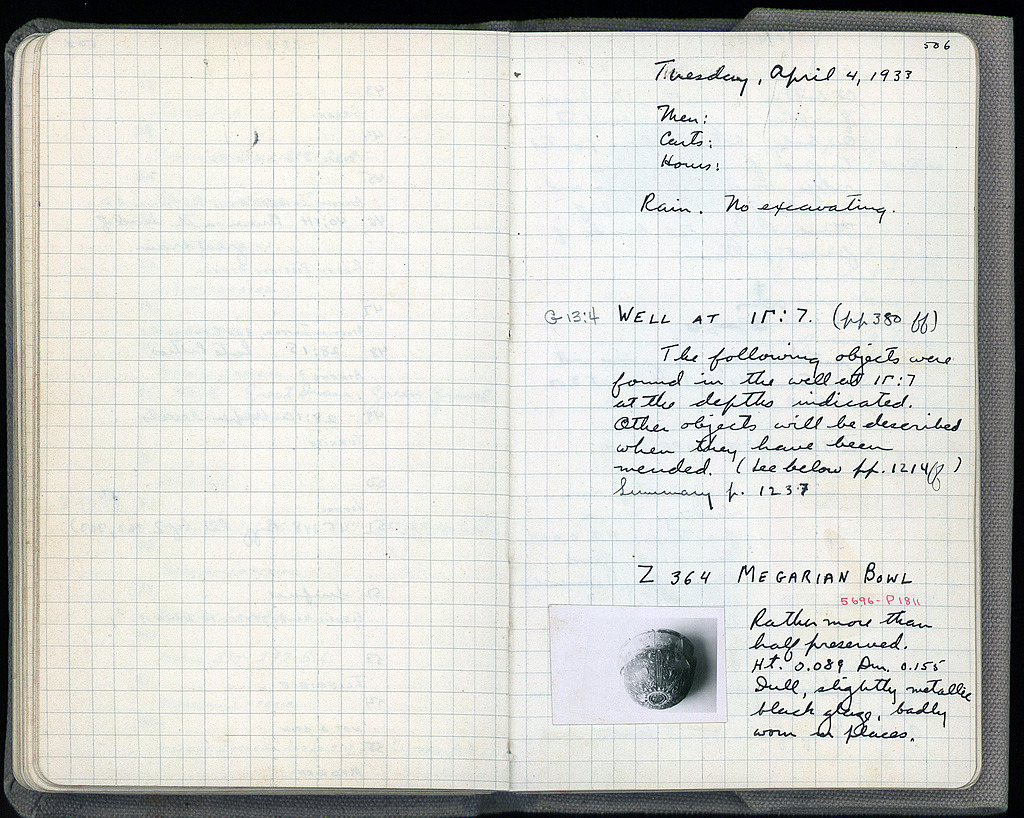 506
Tuesday, April 4, 1933
Men:
Carts:
Hours:
Rain. No excavating.
G 13:4 WELL AT 1Γ:7. (pp 380 ff)
The following objects were
found in the well at 1Γ:7
at the depths indicated.
Other objects will be described
when they have been
mended. (See below pp. 1214ff)
Summary p. 1237
Z 364 MEGARIAN BOWL
5696-P1811
Rather more than
half preserved.
Ht. 0.089 Dm. 0.155
Dull, slightly metallic
black glaze, badly
worn in places.